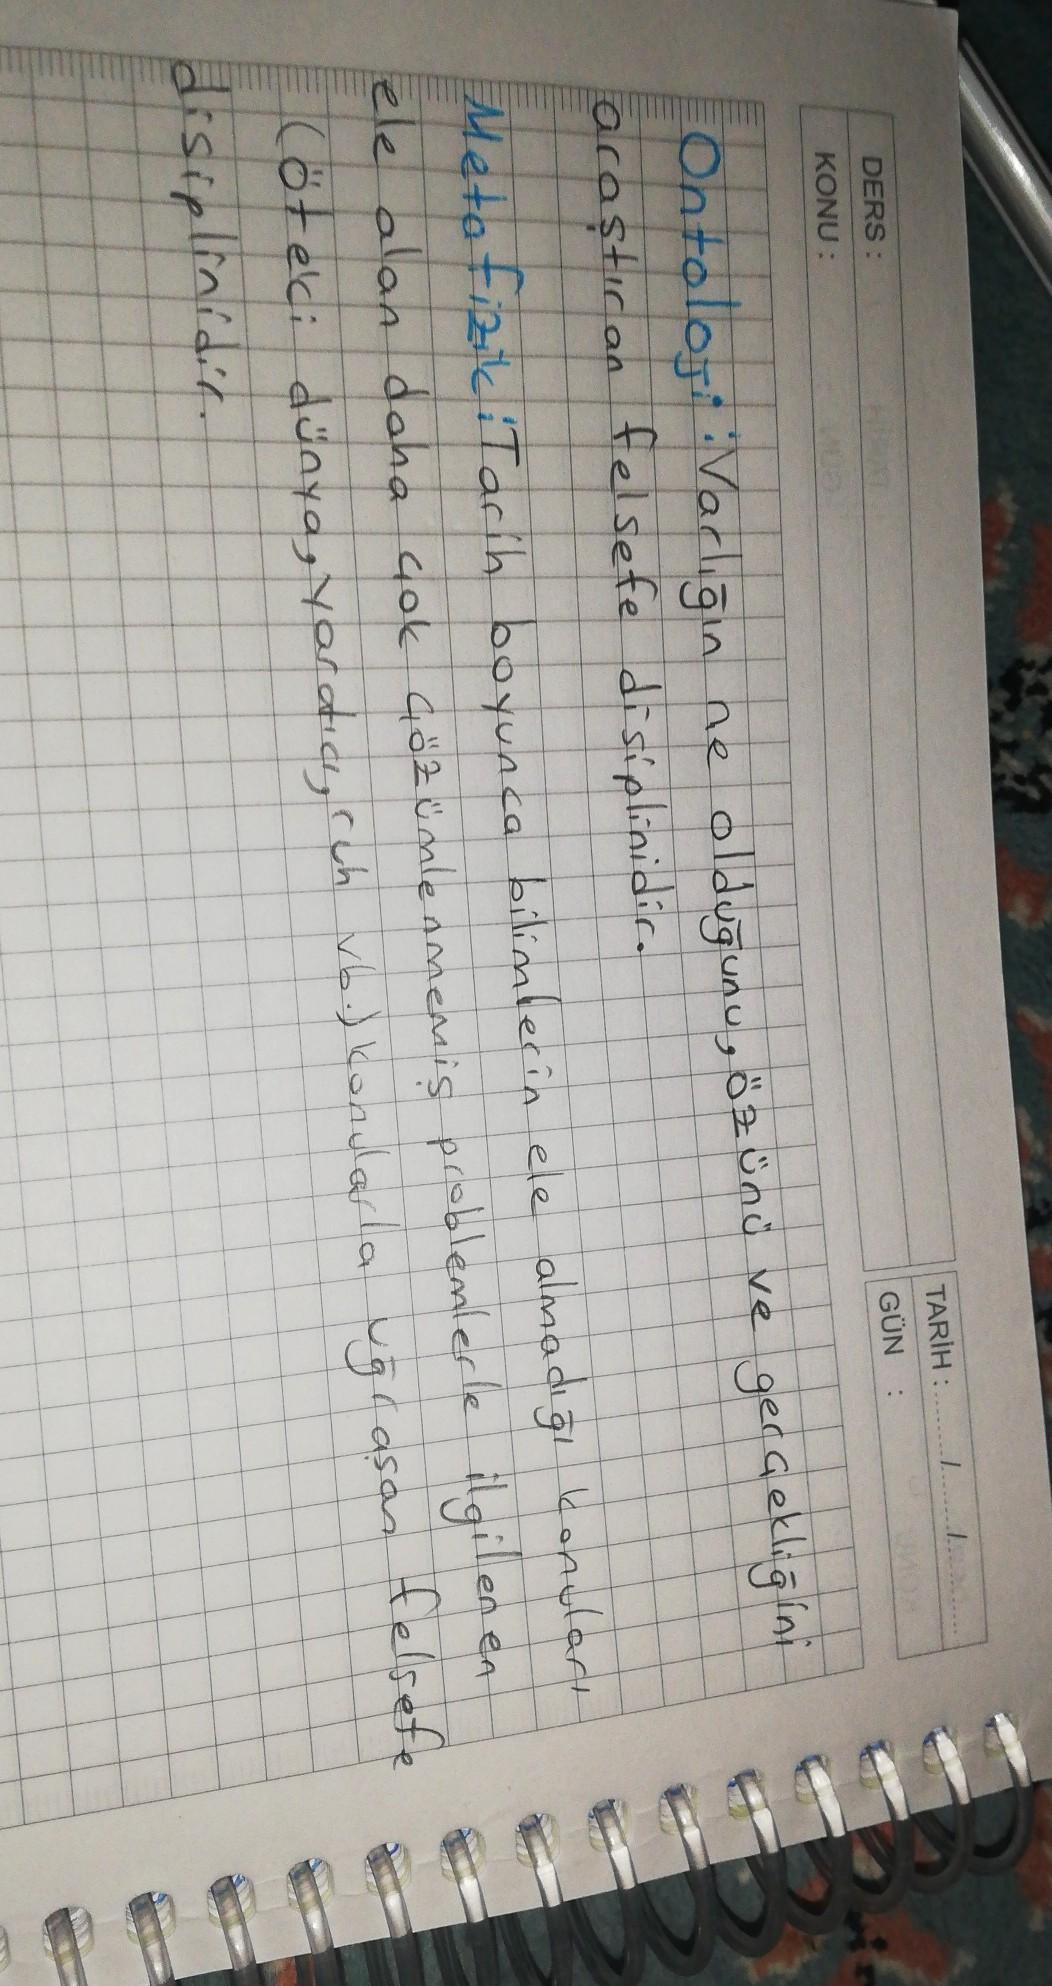 DERS :
KONU :
TARİH : ........./........./.........
GÜN :
Ontoloji : Varlığın ne olduğunu, özünü ve gerçekliğini
araştıran felsefe disiplinidir.
Metafizik : Tarih boyunca bilimlerin ele almadığı konuları
ele alan daha çok çözümlenmemiş problemlerle ilgilenen
(öteki dünya, Yaratıcı, ruh vb.) konularla uğraşan felsefe
disiplinidir.